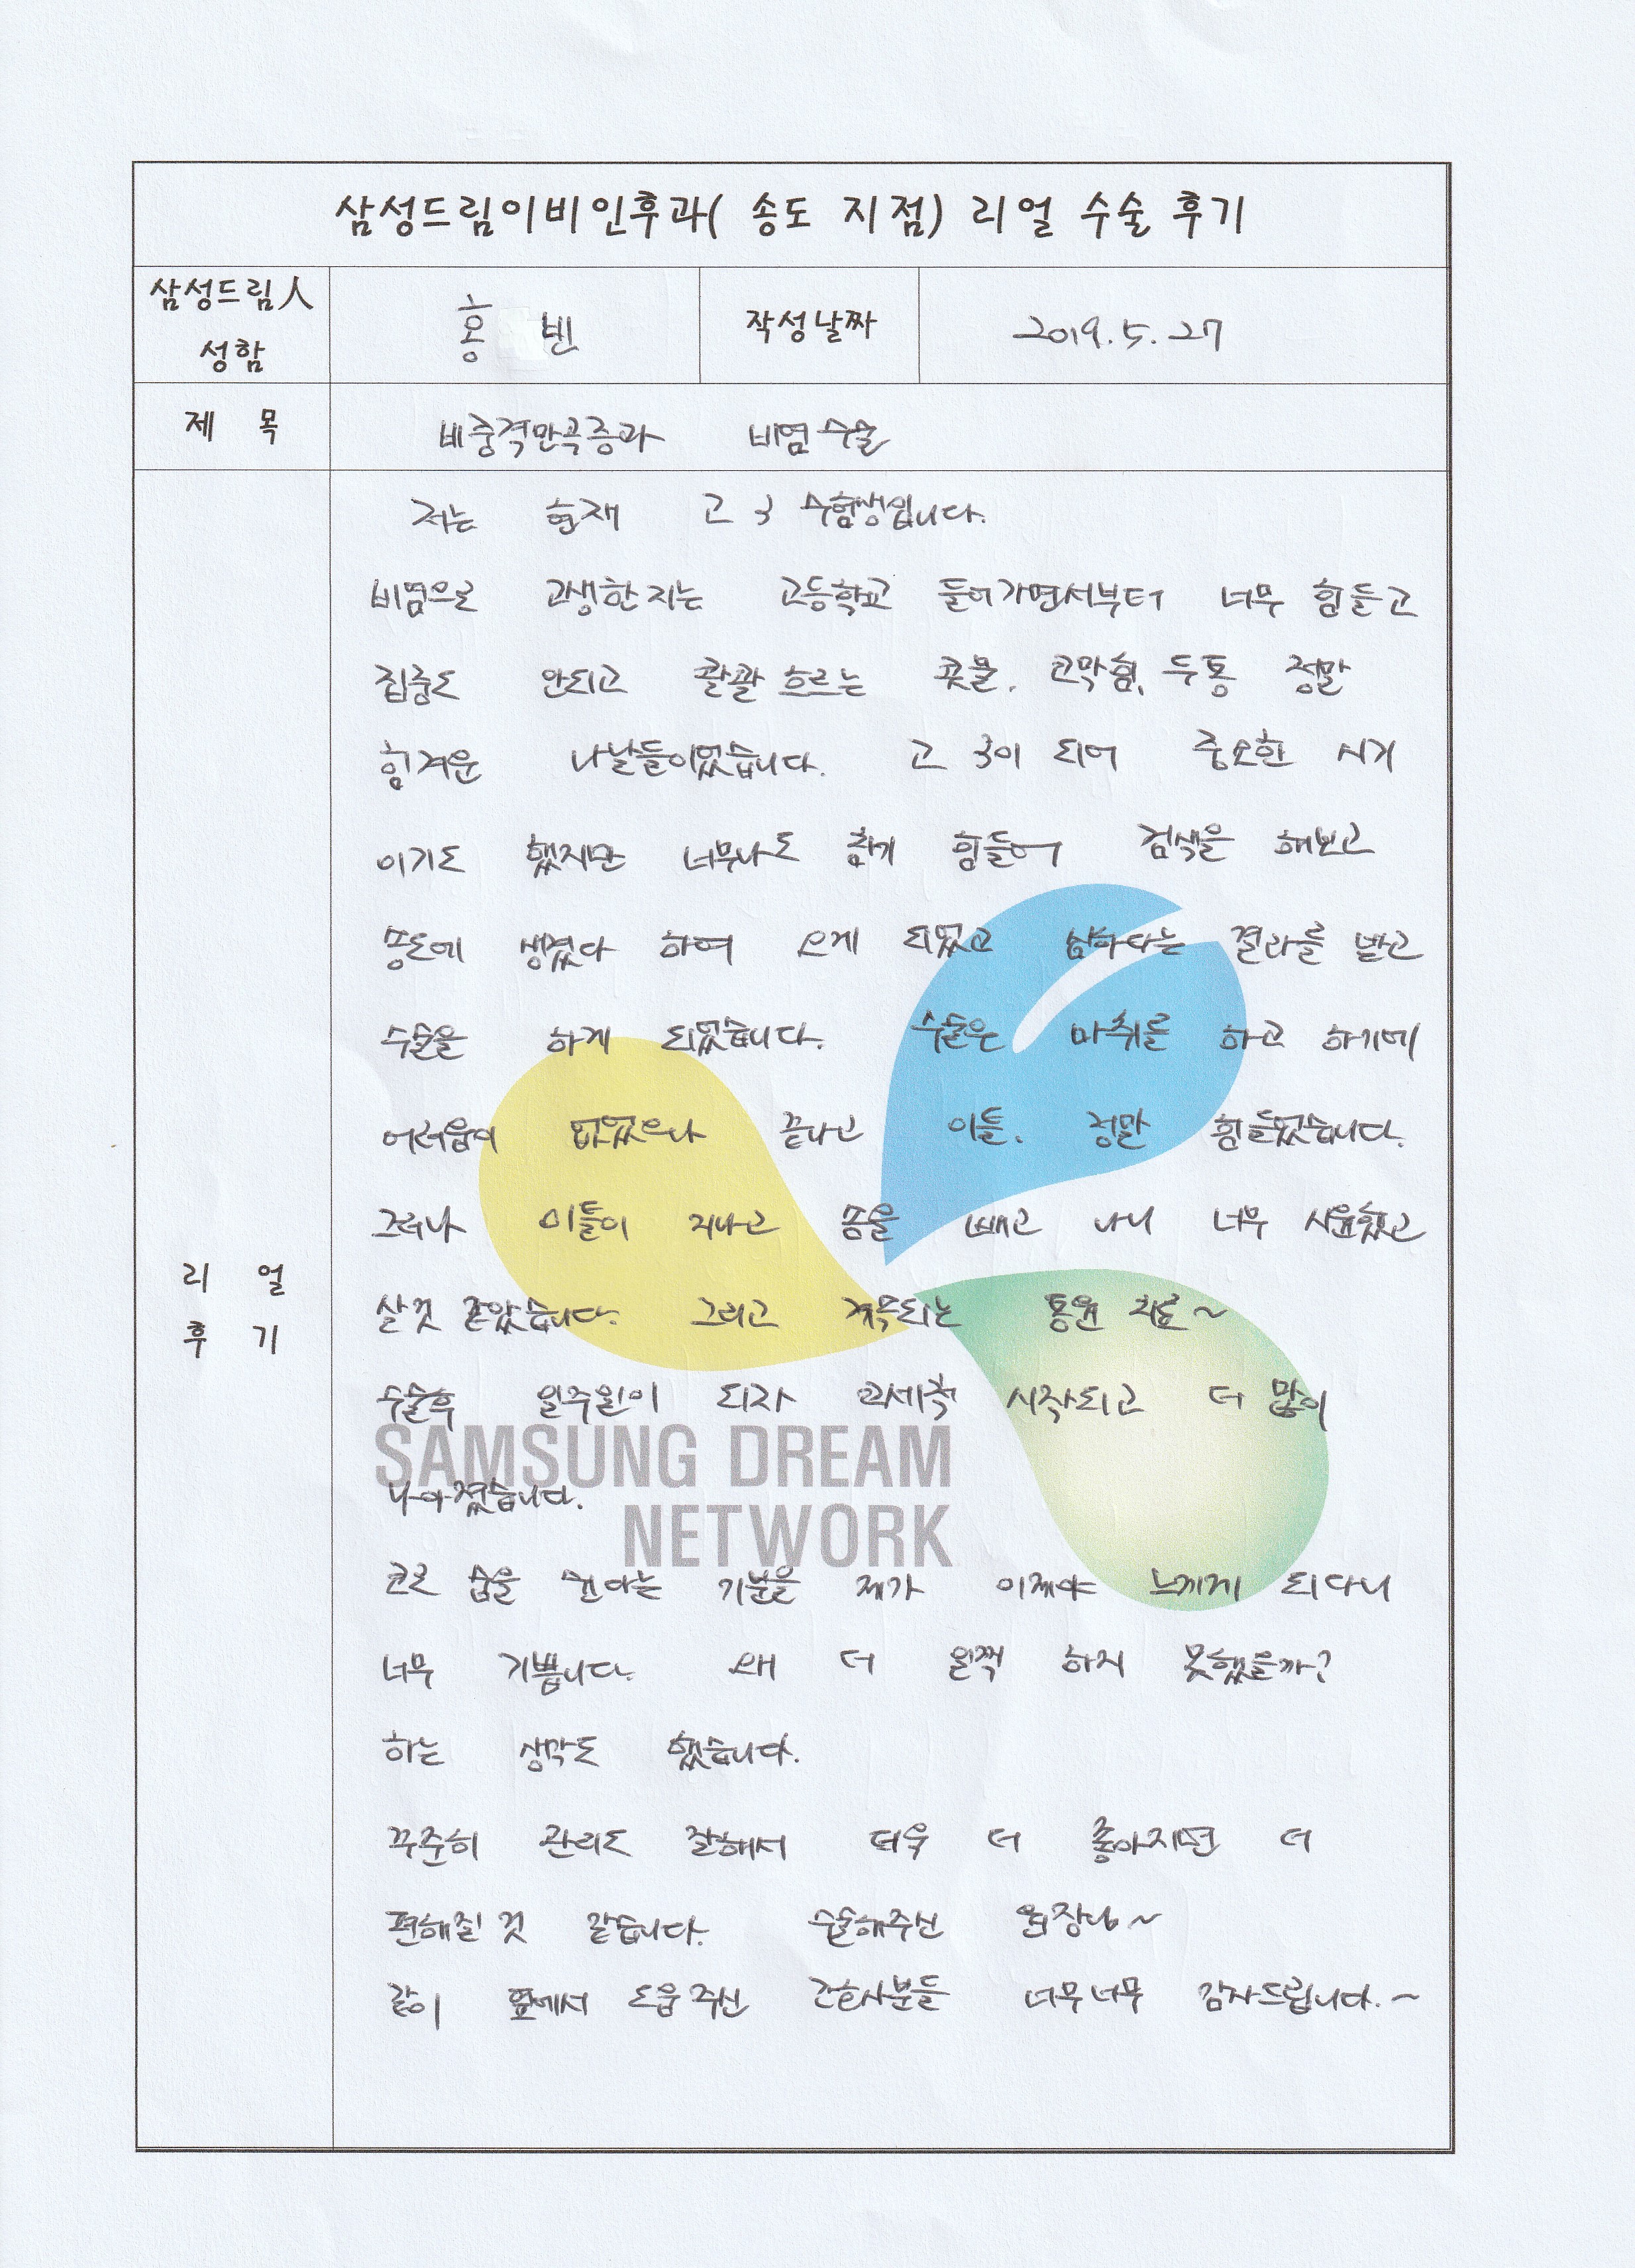 삼성드림이비인후과( 송도 지점) 리얼 수술 후기
삼성드림人 성함
홍 빈
작성날짜
2019. 5. 27
제 목
비중격만곡증과 비염수술
리 얼 후 기
저는 현재 고3 수험생입니다.
비염으로 고생한지는 고등학교 들어가면서부터 너무 힘들고
집중도 안되고 콸콸 흐르는 콧물, 코막힘, 두통 정말
힘겨운 나날들이었습니다. 고 3이 되어 중요한 시기
이기도 했지만 너무나도 참기 힘들어 검색을 해보고
송도에 생겼다 하여 오게 되었고 심하다는 결과를 받고
수술을 하게 되었습니다. 수술은 마취를 하고 하기에
어려움이 없었으나 끝나고 이틀. 정말 힘들었습니다.
그러나 이틀이 지나고 솜을 빼고 나니 너무 시원했고
살것 같았습니다. 그리고 계속되는 통원 치료~
수술후 일주일이 되자 코세척 시작되고 더 많이
나아졌습니다.
코로 숨을 쉰다는 기분을 제가 이제야 느끼게 되다니
너무 기쁩니다. 왜 더 일찍 하지 못했을까?
하는 생각도 했습니다.
꾸준히 관리도 잘해서 더욱 더 좋아지면 더
편해질 것 같습니다. 수술해주신 원장님~
같이 옆에서 도움주신 간호사분들 너무너무 감사드립니다.~
SAMSUNG DREAM
NETWORK